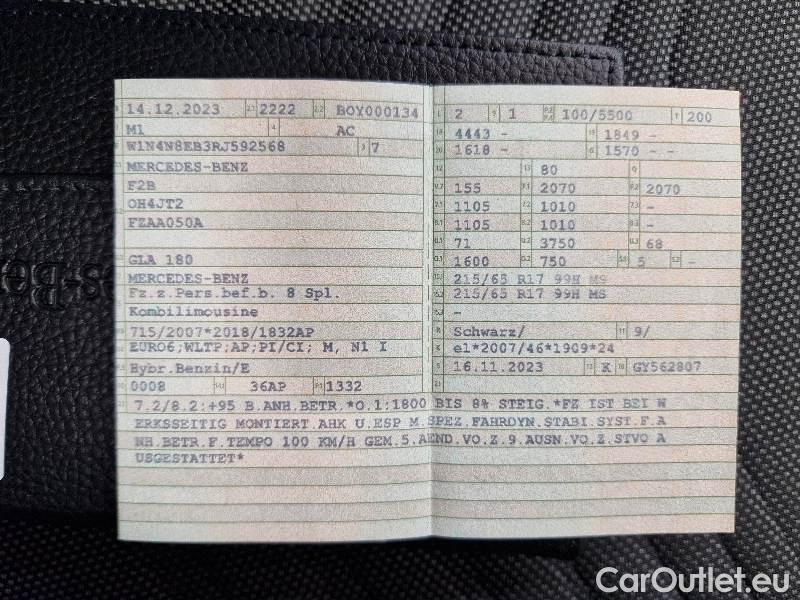 14.12.2023 2222 BOY000134
M1 AC
W1N4N8EB3RJ592568 7
MERCEDES-BENZ
F2B
OH4JT2
FZAA050A
GLA 180
MERCEDES-BENZ
Fz.z.Pers.bef.b. 8 Spl.
Kombilimousine
715/2007*2018/1832AP
EURO6;WLTP;AP;PI/CI; M, N1 I
Hybr.Benzin/E
0008 36AP 1332
2 1 100/5500 200
4443 - 1849 -
1618 - 1570 - -
80
155 2070 2070
1105 1010 -
1105 1010 -
71 3750 68
1600 750 5 -
215/65 R17 99H MS
215/65 R17 99H MS
-
Schwarz/ 9/
e1*2007/46*1909*24
16.11.2023 K GY562807
7.2/8.2:+95 B.ANH.BETR.*O.1:1800 BIS 8% STEIG.*FZ IST BEI W
ERKSSEITIG MONTIERT.AHK U.ESP M.SPEZ.FAHRDYN.STABI.SYST.F.A
NH.BETR.F.TEMPO 100 KM/H GEM.5.AEND.VO.Z.9.AUSN.VO.Z.STVO A
USGESTATTET*
CarOutlet.eu